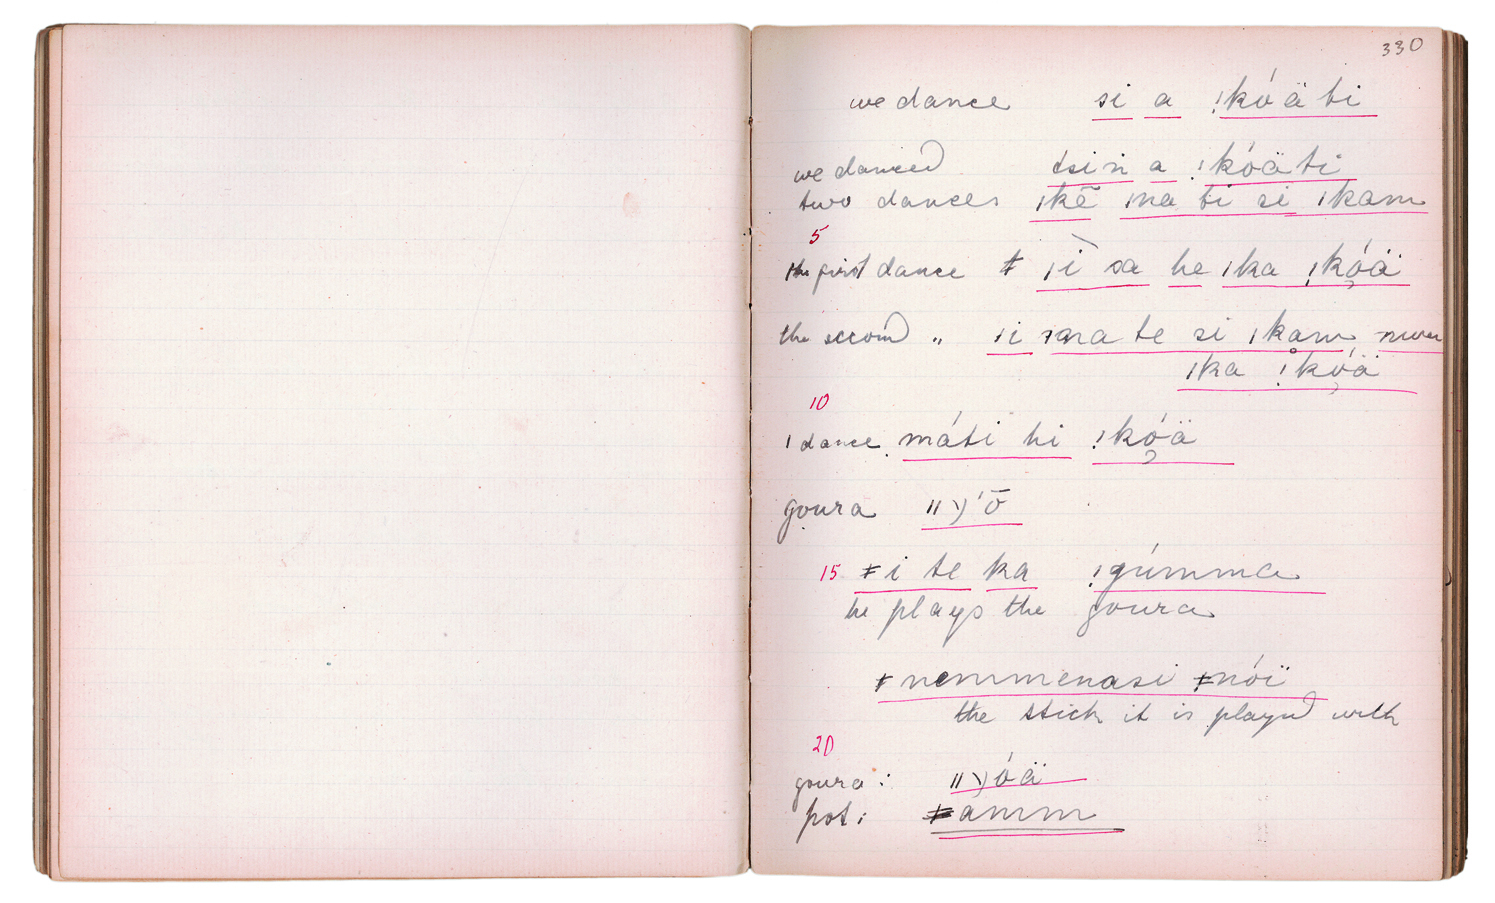 330
we dance si a !kóä ti
we danced tsin a !kóäti
two dances ǀkē ǀna ti si ǀkam
5
the first dance ǂ ǀì sa he ǀka !kóä
the second " ǀi ǀna te si ǀkam
ǀka !kóä
10
I dance máti hi !kóä
goura ǁ ɣ'ō
15 ǂi te ka !gúmma
he plays the goura
ǂnemmenasi ǂnóï
the stick it is played with
20
goura: ǁ ɣóä
pot: ǂamm